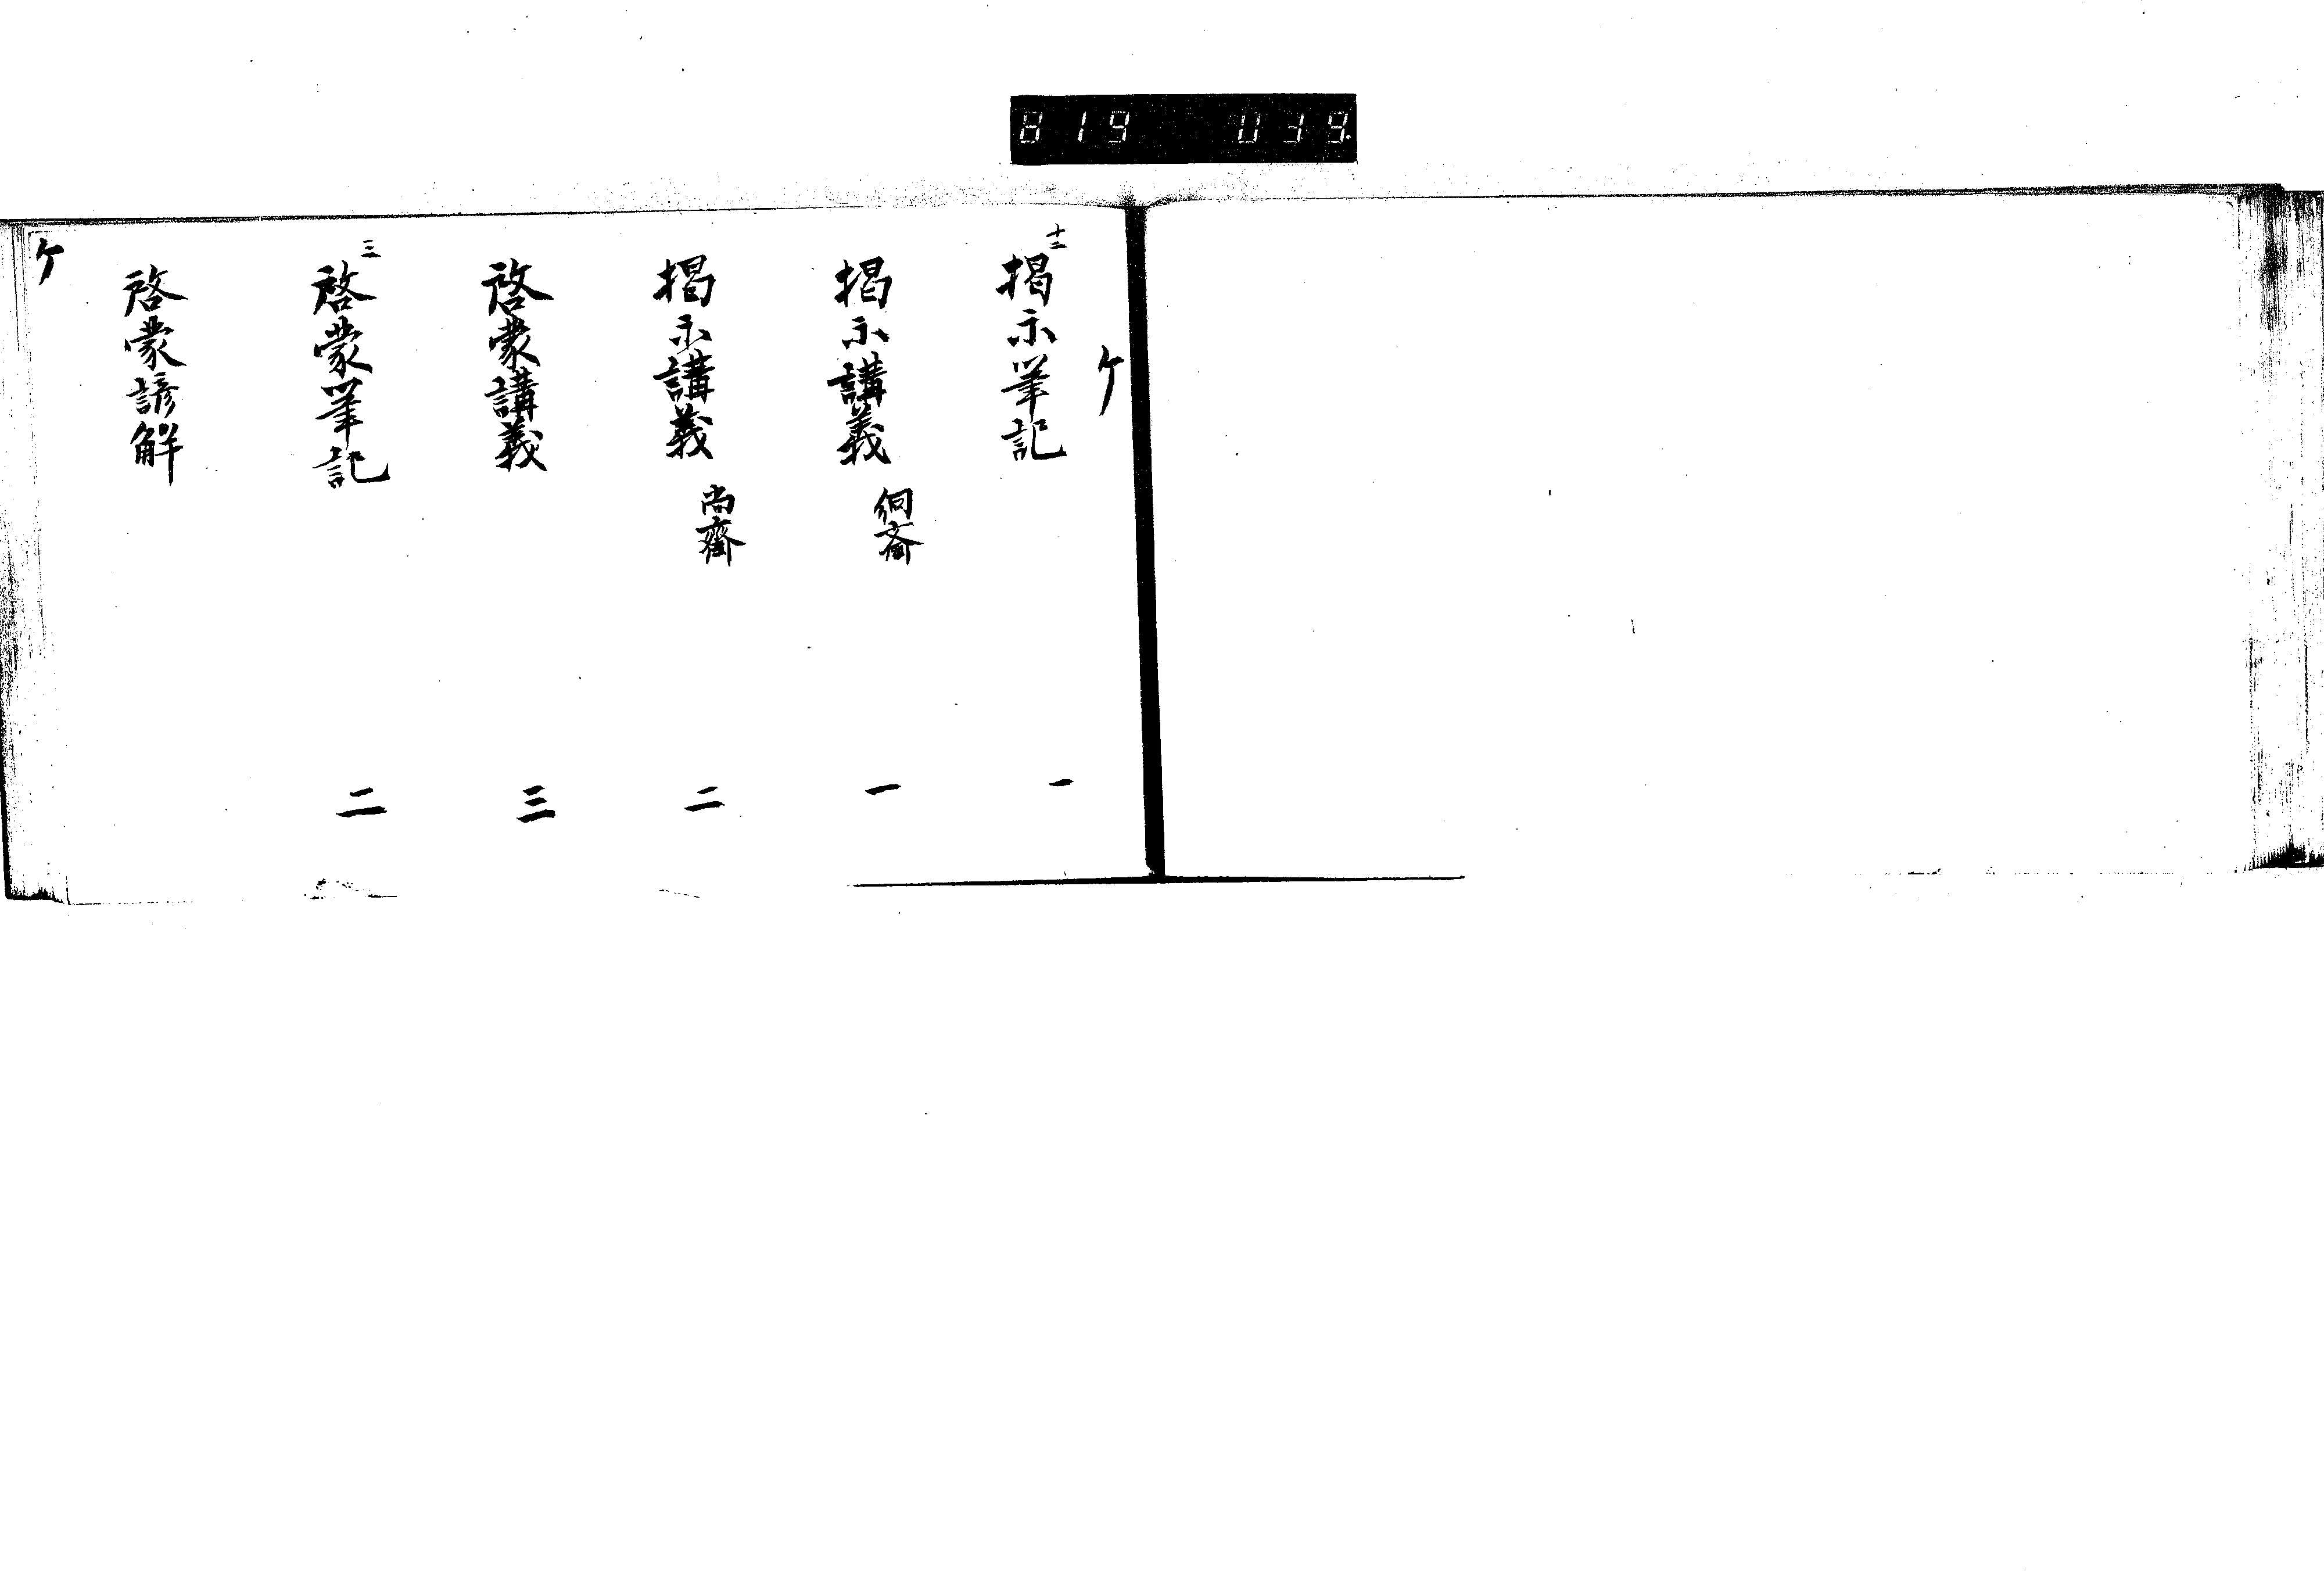 819 039
ケ
十二
掲示筆記 一
掲示講義 絅斎 一
掲示講義 尚齋 二
啓蒙講義 三
三
啓蒙筆記 二
啓蒙諺解
ケ